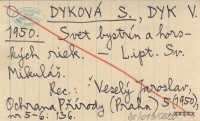 DYKOVÁ S., DYK V.
1950. Svet bystrín a hors-
kých riek. Lipt. Sv.
Mikuláš.
Rec.: Veselý Jaroslav,
Ochrana Přírody (Praha) 5 (1950),
nr 5-6: 136.